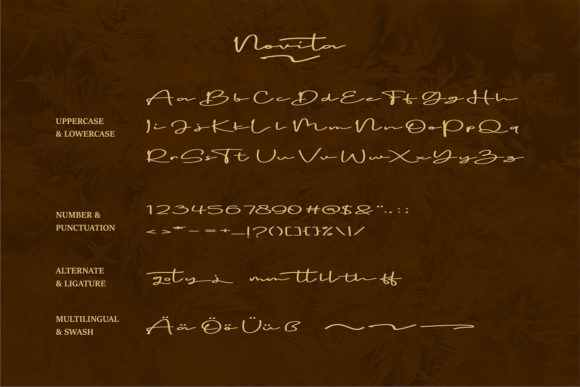 Novita
UPPERCASE
& LOWERCASE
Aa Bb Cc Dd Ee Ff Gg Hh
Ii Jj Kk Ll Mm Nn Oo Pp Qq
Rr Ss Tt Uu Vv Ww Xx Yy Zz
NUMBER &
PUNCTUATION
1234567890#@$&¨.,:;
<>*-=+_!?()[]{}%\|/
ALTERNATE
& LIGATURE
g o t y j mm tt ll th ff
MULTILINGUAL
& SWASH
Ää Öö Üü ß